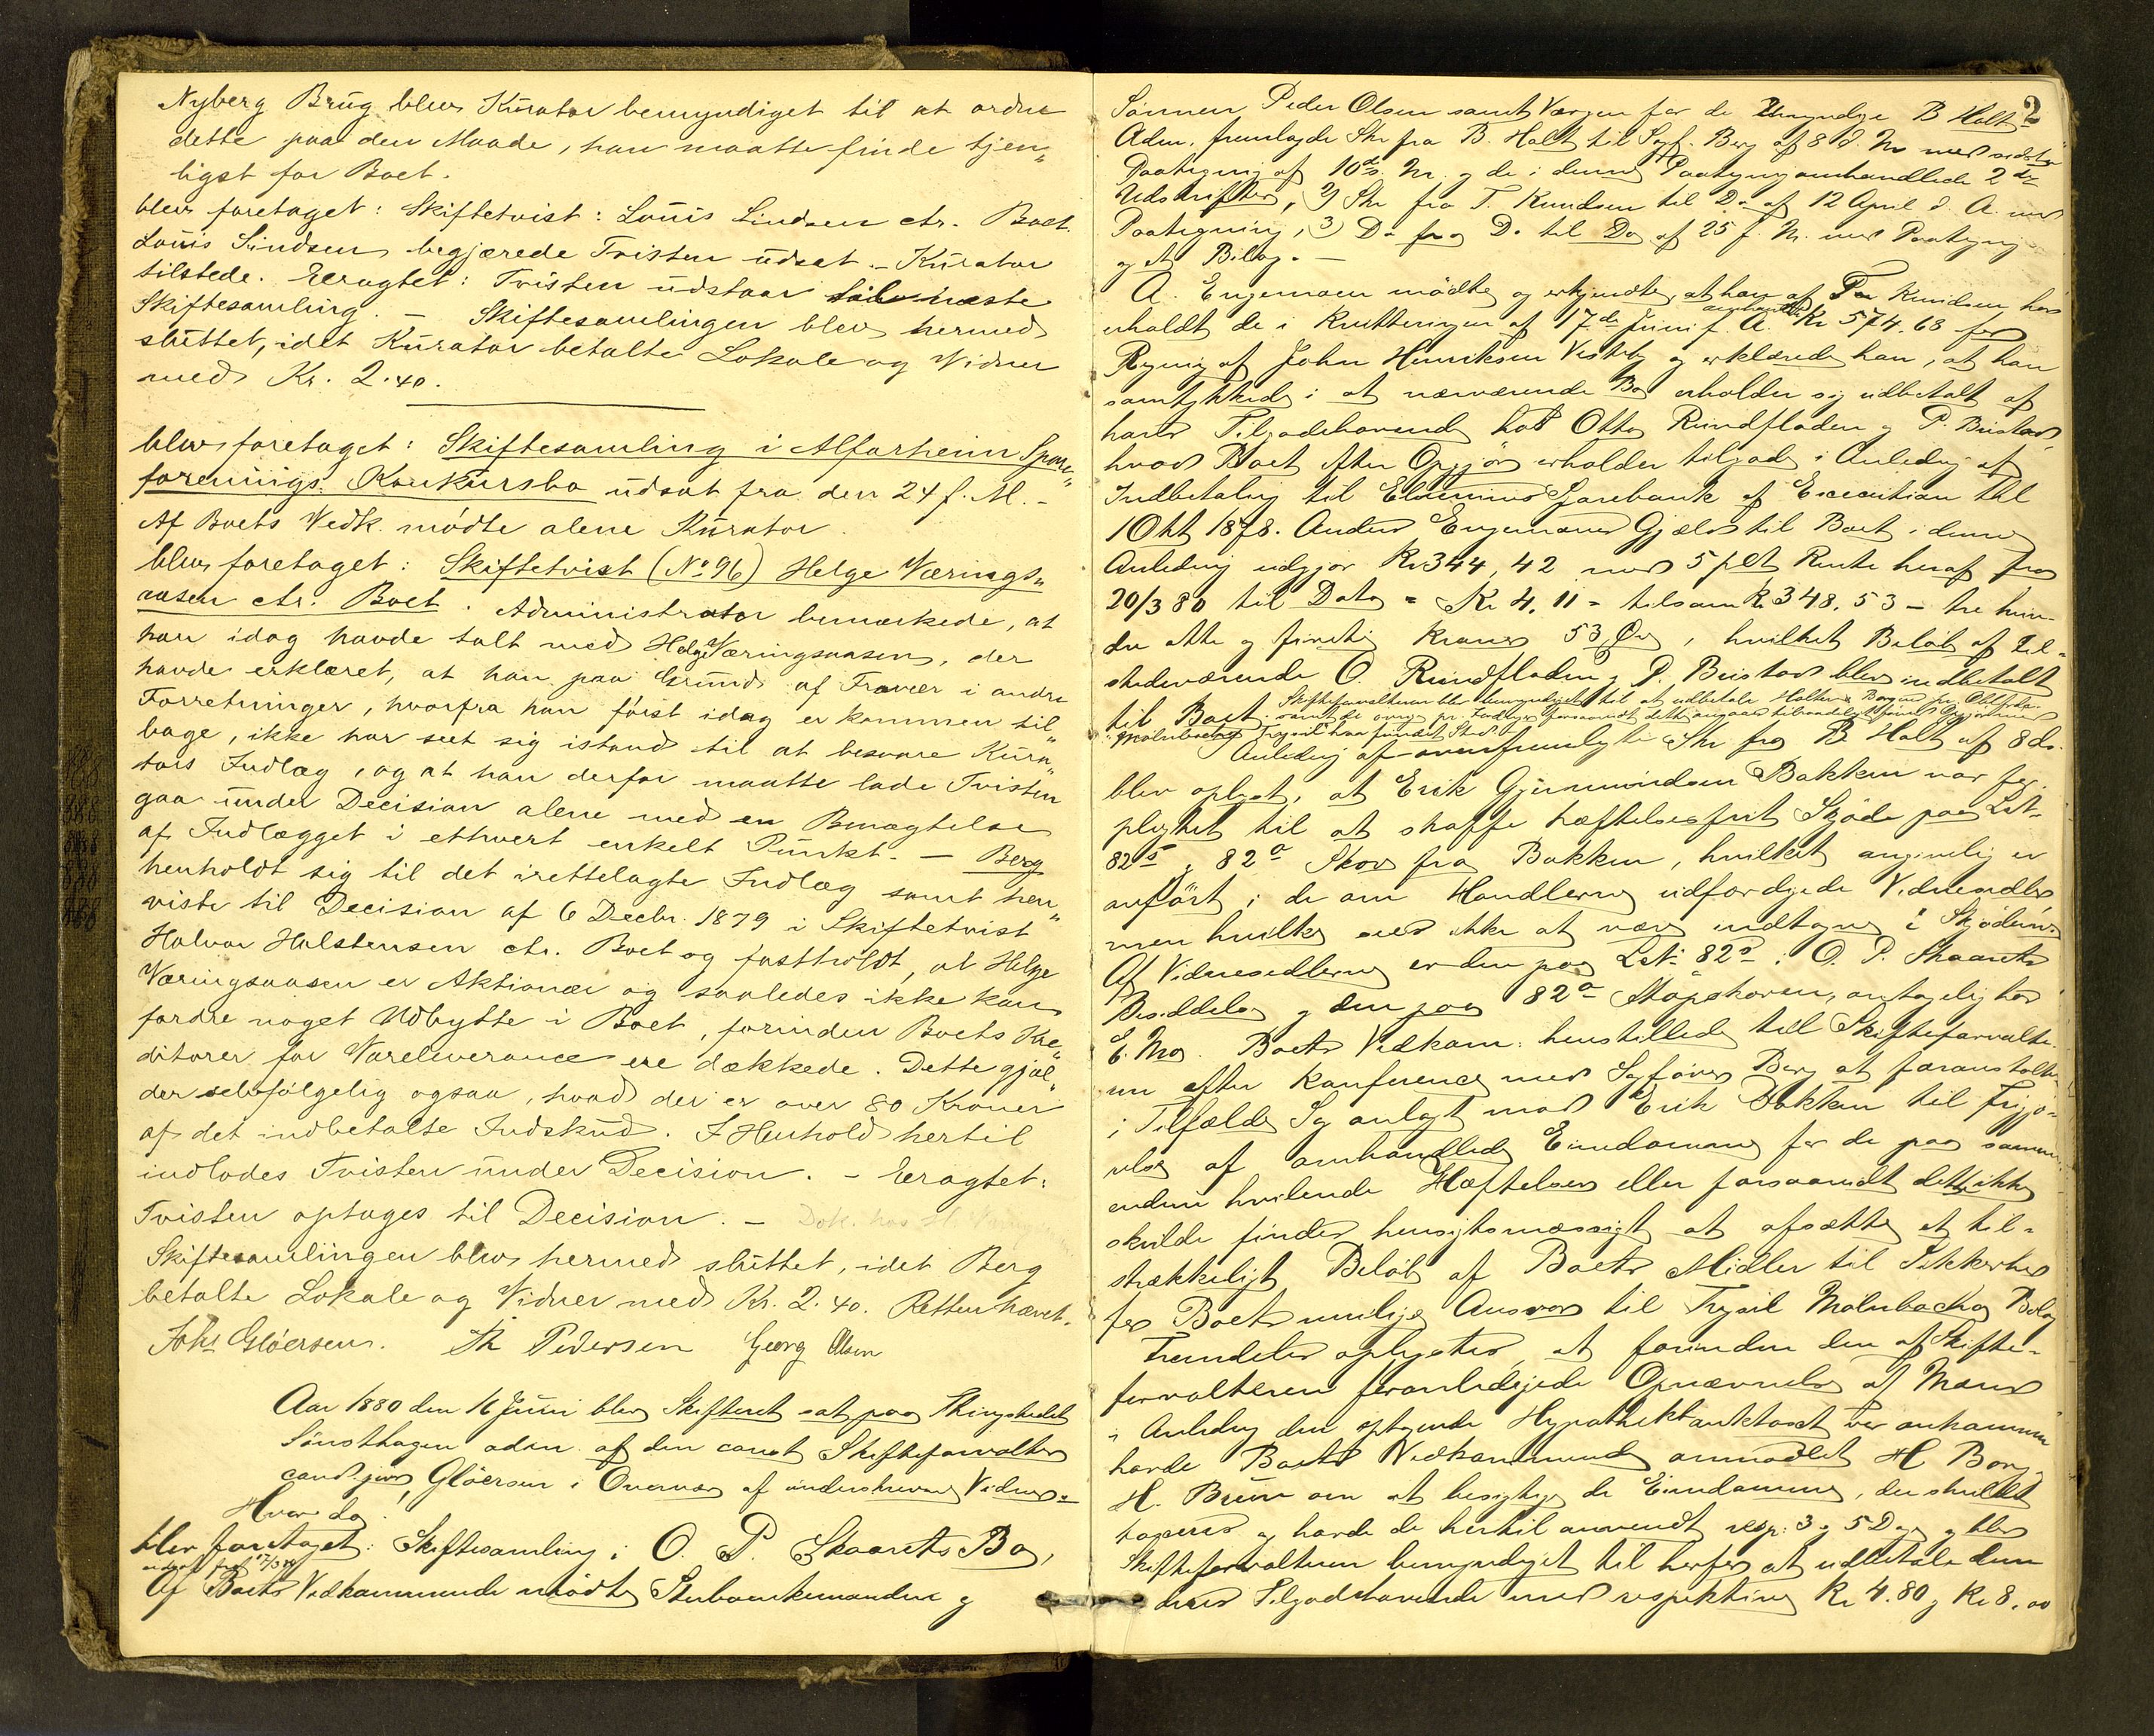 Nyberg Brug blev Kurator bemyndiget til at ordne
dette paa den Maade, han maatte finde tjen„
ligst for Boet.
blev foretaget: Skiftetvist: Louis Lindsen ctr. Boet.
Louis Lindsen begjærede Tvisten udsat. – Kurator
tilstede. Eragtet: Tvisten udstaar til næste
Skiftesamling. – Skiftesamlingen blev hermed
sluttet, idet Kurator betalte Lokale og Vidner
med Kr. 2.40.
blev foretaget: Skiftesamling i Alfarheim Spare„
forenings Konkursbo udsat fra den 24 f. M. –
Af Boets Vedk. mödte alene Kurator.
blev foretaget: Skiftetvist (No 96) Helge Værings„
aasen ctr. Boet. Administrator bemærkede, at
han idag havde talt med Helge Væringsaasen, der
havde erklæret, at han paa Grund af Fravær i andre
Forretninger, hvorfra han först idag er kommen til„
bage, ikke har seet sig istand til at besvare Kura„
tors Indlæg, og at han derfor maatte lade Tvisten
gaa under Decision alene med en Benægtelse
af Indlægget i ethvert enkelt Punkt. – Berg
henholdt sig til det irettelagte Indlæg samt hen„
viste til Decision af 6 Decbr. 1879 i Skiftetvist
Halvor Halstensen ctr. Boet og fastholdt, at Helge
Væringsaasen er Aktionær og saaledes ikke kan
fordre noget Udbytte i Boet, forinden Boets Kre„
ditorer for Vareleverance ere dækkede. Dette gjæl„
der selvfölgelig ogsaa, hvad der er over 80 Kroner
af det indbetalte Indskud. I Henhold hertil
indlodes Tvisten under Decision. – Eragtet:
Tvisten optages til Decision. – Dok. hos H.
Skiftesamlingen blev hermed sluttet, idet Berg
betalte Lokale og Vidner med Kr. 2.40. Retten hævet.
Johs Glöersen. Th Pedersen Georg Olsen
Aar 1880 den 16 Juni blev Skifteret sat paa Thingstedet
Sönsthagen adm. af den const Skifteforvalter
cand. jur. Glöersen i Overvær af underskrevne Vidner.
Hvorda!
blev foretaget: Skiftesamling i O. P. Skaarets Bo,
udsat fra 17/3
Af Boets Vedkommende mödte Stervboenkemanden og
2
Sönnen Peder Olsen samt Værgen for de Umyndige B Holt
Adm. fremlagde Skr fra B. Holt til Sagf. Berg af 8 d. M med sidstes
Paategning af 10 ds. M. og de i denne Paategning omhandlede 2de
Udskrifter, 2) Skr fra T. Knudsen til Do af 12 April d. A. med
Paategning, 3) Do fra Do til Do af 25 f. M. med Paategning
og et Bilag. –
A. Engemoen mödte og erkjendte, at han af Tor Knudsen har
erholdt de i Kvitteringen af 17de Juni f. A. omhandlede Kr 574.68 for
Regning af John Henriksen Vestby og erklærede han, at han
samtykkede i at nærværende Bo erholder sig udbetalt af
hans Tilgodehavende hos Otto Rundfloden og P. Bristad
hvad Boet efter Opgjör erholder tilgode i Anledning af
Indbetaling til Elverums Sparebank af Execution til
1 Okt 1878. Anders Engemoens Gjæld til Boet i denne
Anledning udgjör Kr 344,42 med 5 pCt Rente heraf fra
20/3 80 til Dato = Kr 4.11 = tilsam Kr 348.53 – tre hun-
dre otte og firti Kroner 53 Öre, hvilket Belöb af til-
stedeværende O. Rundfloden og P. Bristad blev indbetalt
til Boet. Skifteforvalteren blev bemyndiget til at udbetale
Anledning af Skr fra B Holt af 8 ds.
blev oplyst, at Erik Gjermundsen Bakken var for-
pligtet til at skaffe hæftelsesfrit Skjöde paa
82 b og 82 a Skov fra Bakken, hvilket angivelig er
anfört i de om Handlerne udfærdigede Vidnesedler
men hvilke ikke at være indtagne i Skjöderne
Af Vidnesedlerne er den paa L.N. 82 b i O. P. Skaarets
Besiddelse og den paa 82 a antagelig hos
E. Mo. Boets Vedkom. henstillede til Skifteforvalte-
ren efter Konference med Sagförer Berg at foranstalte
i Tilfælde Sag anlagt mod Erik Bakken til Frigjö-
relse af omhandlede Eiendomme for de paa samme
endnu hvilende Hæftelser eller forsaavidt dette ikke
skulde findes hensigtsmæssigt at afsætte et til-
strækkeligt Belöb af Boets Midler til Sikkerhed
for Boets mulige Ansvar til Trysil Molnbacka Bolag
Fremdeles oplystes, at forinden den af Skifte-
forvalteren foranledigede Opnævnelse af Mænd
i Anledning den optagende Hypothektaxt var ankommen
havde Boets Vedkommende anmodet H Berg
H. Bruu om at besigtige de Eiendomme, der skulde
taxeres og havde de hertil anvendt resp. 3 og 5 Dage og blev
Skifteforvalteren bemyndiget til herfor at udbetale dem
deres Tilgodehavende med respektive Kr 4.80 og Kr 8.00